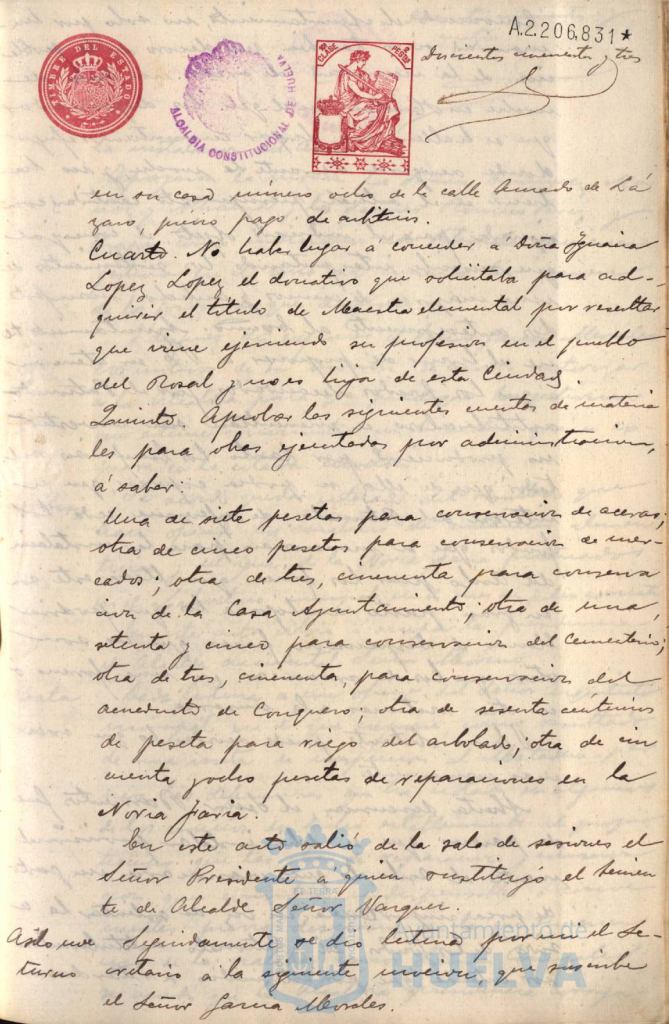 A.2.206.831*
Doscientos cincuenta y tres
TIMBRE DEL ESTADO
ALCALDIA CONSTITUCIONAL DE HUELVA
CLASE PESETAS
en su casa número ocho de la calle Amado de Lá
zaro, previo pago de arbitrios.
Cuarto. No haber lugar á conceder á Doña Ignacia
Lopez Lopez el donativo que solicitaba para ad-
quirir el título de Maestra elemental por resultar
que viene ejerciendo su profesion en el pueblo
del Rosal y no es hija de esta Ciudad.
Quinto. Aprobar las siguientes cuentas de materia
les para obras ejecutadas por administracion,
á saber:
Una de siete pesetas para conservacion de aceras;
otra de cinco pesetas para conservacion de mer-
cados; otra de tres, cincuenta para conserva
cion de la Casa Ayuntamiento; otra de una,
setenta y cinco para conservacion del Cementerio;
otra de tres, cincuenta, para conservacion del
acueducto de Conquero; otra de sesenta céntimos
de peseta para riego del arbolado; otra de cin
cuenta y ocho pesetas de reparaciones en la
Noria
En este acto salió de la sala de sesiones el
Señor Presidente á quien sustituyó el Tenien
te de Alcalde Señor Vazquez.
Seguidamente se dió lectura por mi el Se-
cretario á la siguiente mocion, que suscribe
el Señor Garcia Morales.
Ayuntamiento de
HUELVA